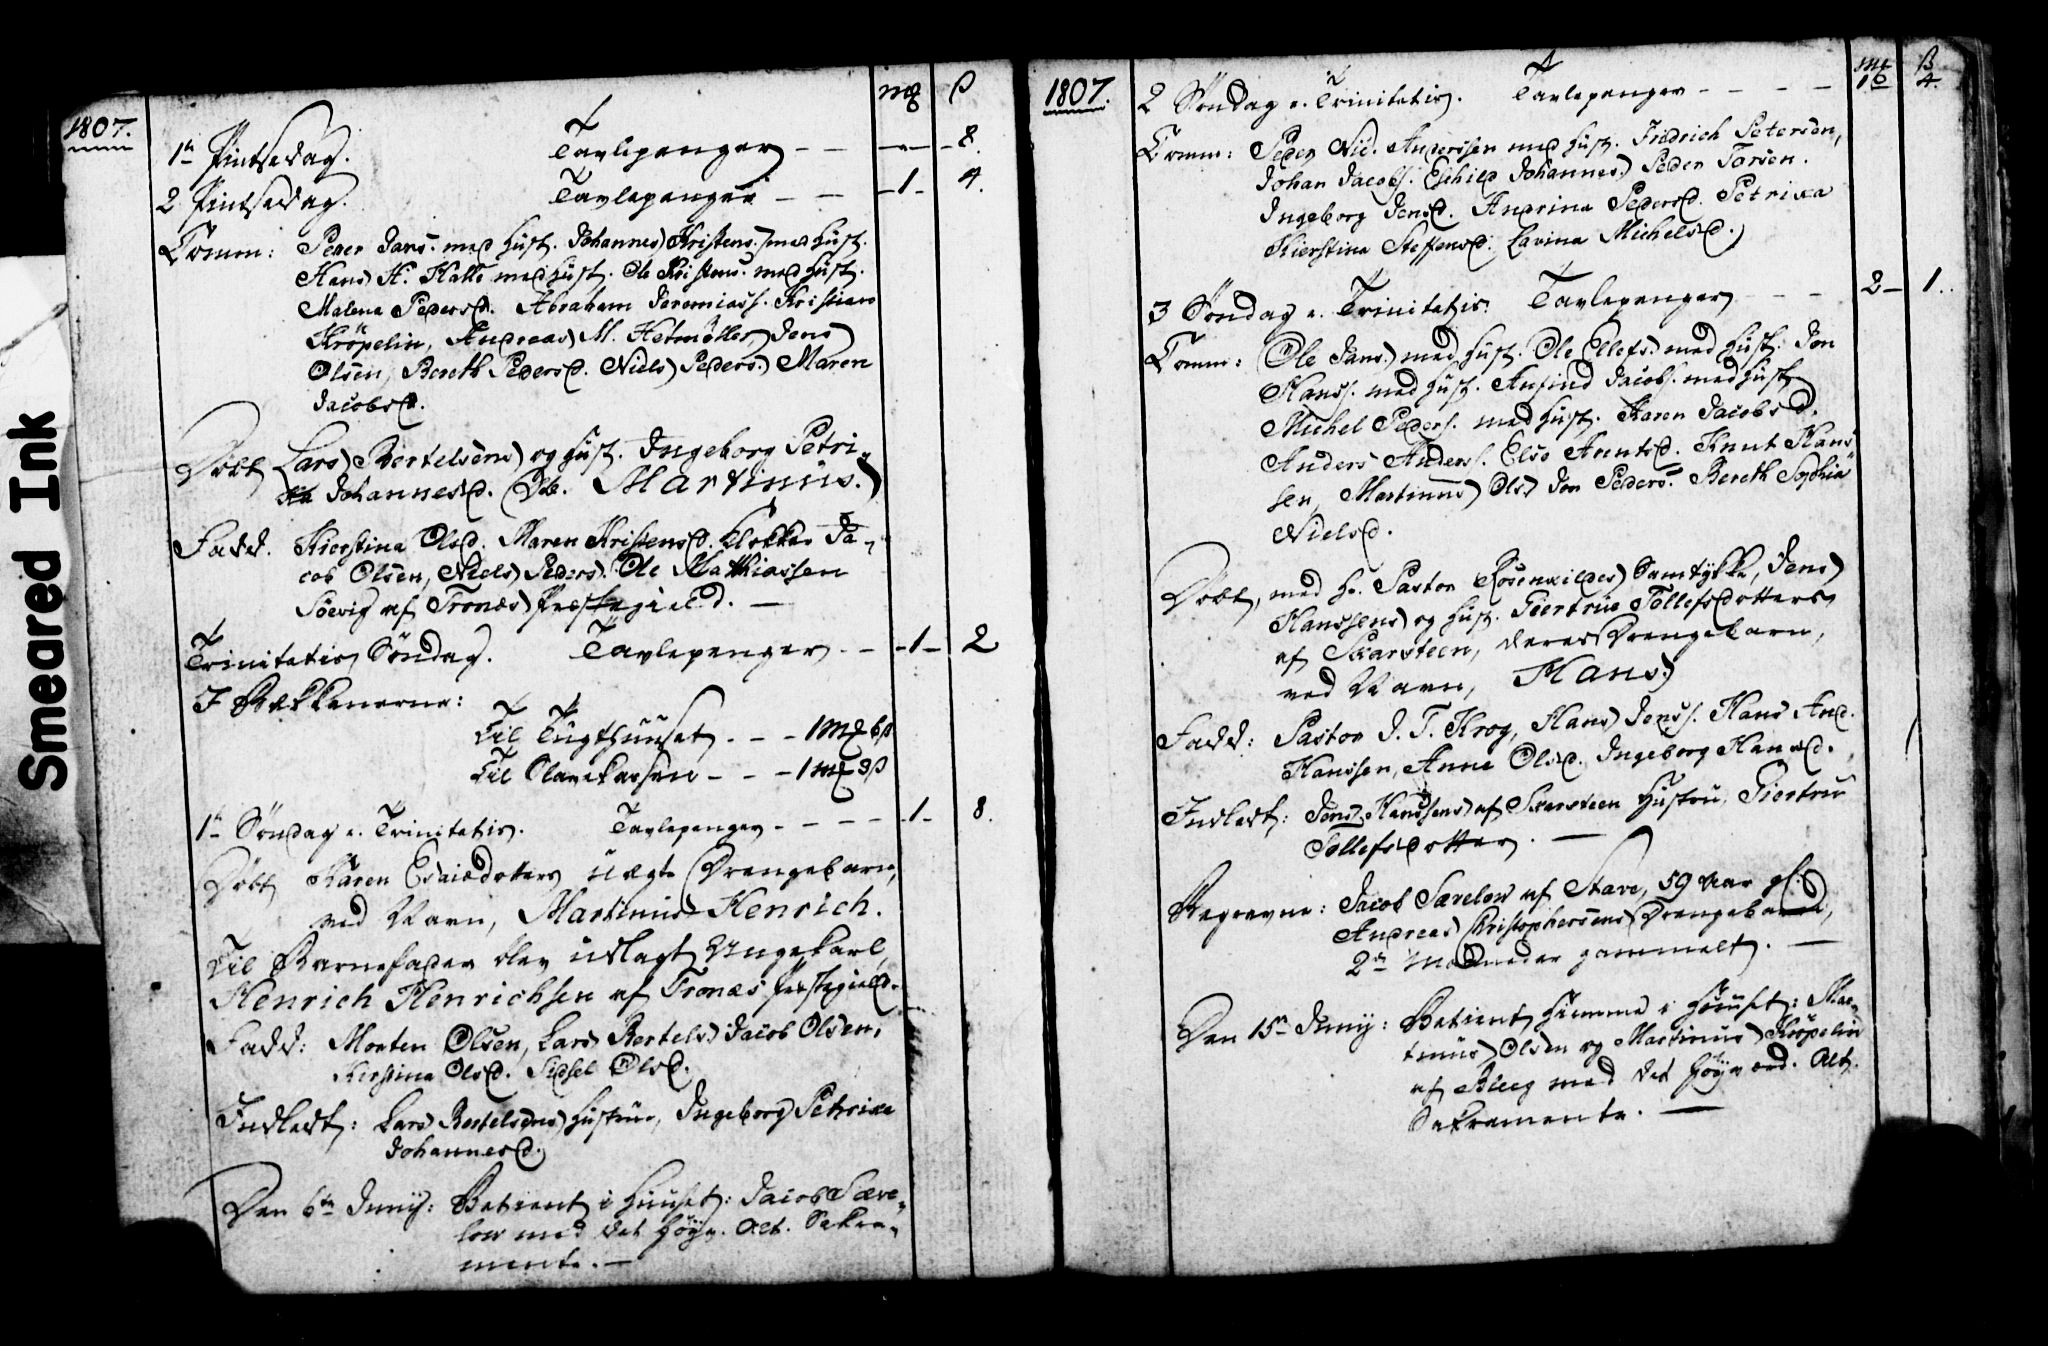 Smeared Ink
1807.
mȝ ß
1te Pintsedag. Tavlepenger - - - 8.
2 Pintsedag. Tavlepenger - - - 1 - 4.
Comm: Peder Jans. med Hust. Johannes Kristens. med Hust.
Hans H. Hatte med Hust. Ole Kristens. med Hust.
Malena Pedersd. Abraham Jeremiass. Kristian
Kröpelin, Andreas M. Hetmøller, Jens
Olsen, Bereth Pedersd. Niels Peders. Maren
Jacobsd.
Døbt Lars Bertelsens og Hust. Ingeborg Petri-
Johannesd. Db. Martinus.
Fadd. Kierstina Olsd. Maren Kristensd. Klokker Ja-
cob Olsen, Niels Peders. Ole Matthiassen
Søevig af Tronæs Præstegield. -
Trinitatis Søndag. Tavlepenger - - 1 - 2
I Bækkenerne:
Til Tugthuuset - - - 1 mȝ 6 ß
Til Olavekassen - - - 1 mȝ 3 ß
1te Søndag e. Trinitatis. Tavlepenger - - - - 1 - 8.
Døbt Karen Esaiædotters uægte Drengebarn,
ved Navn, Martinus Henrich.
Til Barnefader blev udlagt Ungekarl
Henrich Henrichsen af Tronæs Præstegield.
Fadd: Morten Olsen, Lars Bertels. Jacob Olsen,
Kierstina Olsd. Sidsel Olsd.
Indledt: Lars Bertelsens Hustrue, Ingeborg Petrica
Johannesd.
Den 6te Junij: Betient i Huuset: Jacob Sære-
low med det Høyv. Alt. Sakra-
mente. -
1807.
mȝ ß
2 Søndag e. Trinitatis. Tavlepenger - - - - 1 4.
Comm: Peder Nic. Anderssen med Hust. Fridrich Petersen,
Johan Jacobs. Eschild Johannes. Peder Torsen.
Ingeborg Jensd. Andrina Pedersd. Petrica
Kierstina Steffensd. Lavina Michelsd.
3 Søndag e. Trinitatis. Tavlepenger - - - 2 - 1.
Comm: Ole Jans. med Hust. Ole Ellefs. med Hust. Jon
Hanss. med Hust. Anfind Jacobs. med Hust.
Michel Peders. med Hust. Karen Jacobsd.
Anders Anderss. Else Arentsd. Knut Hans-
sen, Martinus Ols. Jon Peders. Bereth Sophia
Nielsd.
Døbt, med Hr. Pastor Rosenvildes Samtykke, Jens
Hanssens og Hust. Giertrue Tollefsdotters
af Skarsteen, deres Drengebarn,
ved Navn, Hans.
Fadd: Pastor J. T. Krog, Hans Jenss. Hans And.
Hanssen, Anne Olsd. Ingeborg Hansd.
Indledt: Jens Hanssens af Skarsteen Hustru, Giertru
Tollefsdotter. -
Begravne: Jacob Særelow af Stave, 59 Aar gl.
Andreas Christophersens Drengebarn,
2de Maaneder gammelt. -
Den 15de Junij: Betient Hiemme i Huuset: Mar-
tinus Olsen og Martinus Kröpelin
af Bleeg med det Høyværd. Alt.
Sakramente. -